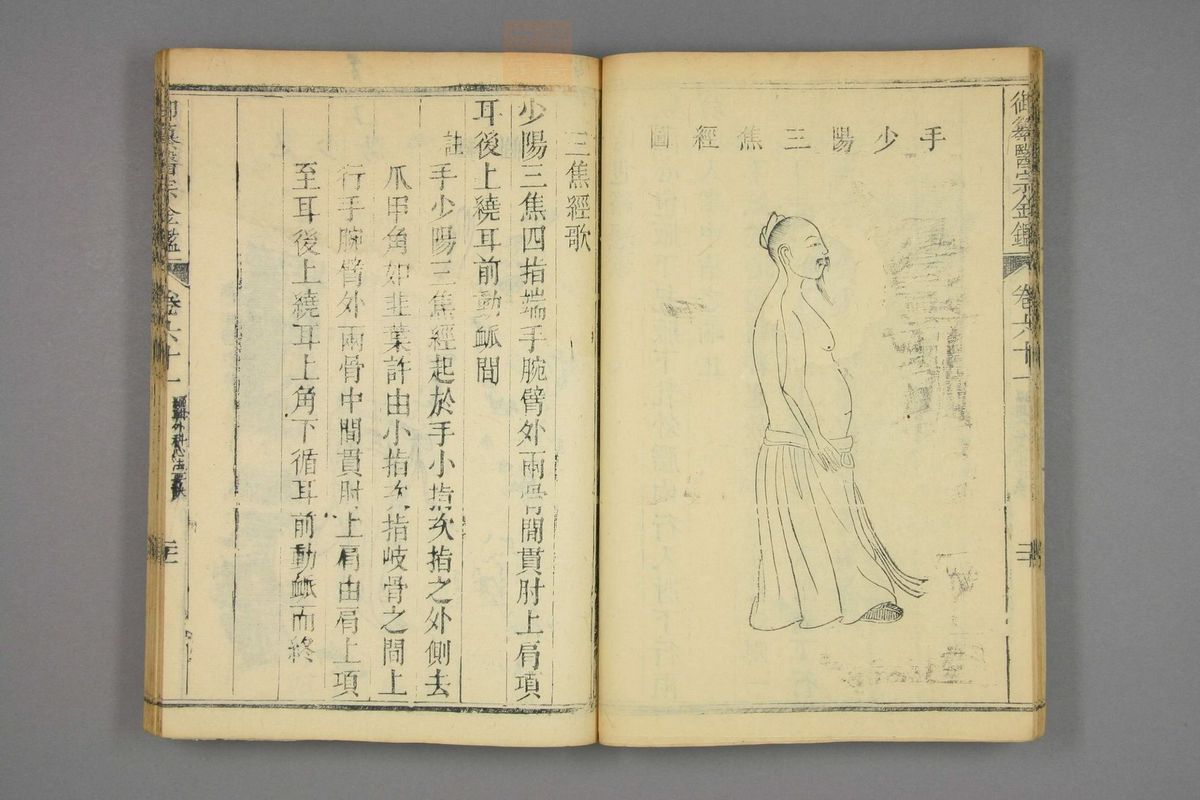 御纂醫宗金鑑
卷六十一
手少陽三焦經圖
三焦經歌
少陽三焦四指端手腕臂外兩骨間貫肘上肩項
耳後上繞耳前動䘑間
註
手少陽三焦經起於手小指次指之外側去
爪甲角如韭葉許由小指次指岐骨之間上
行手腕臂外兩骨中間貫肘上肩由肩上項
至耳後上繞耳上角下循耳前動䘑而終
御纂醫宗金鑑
卷六十一
外科心法要訣